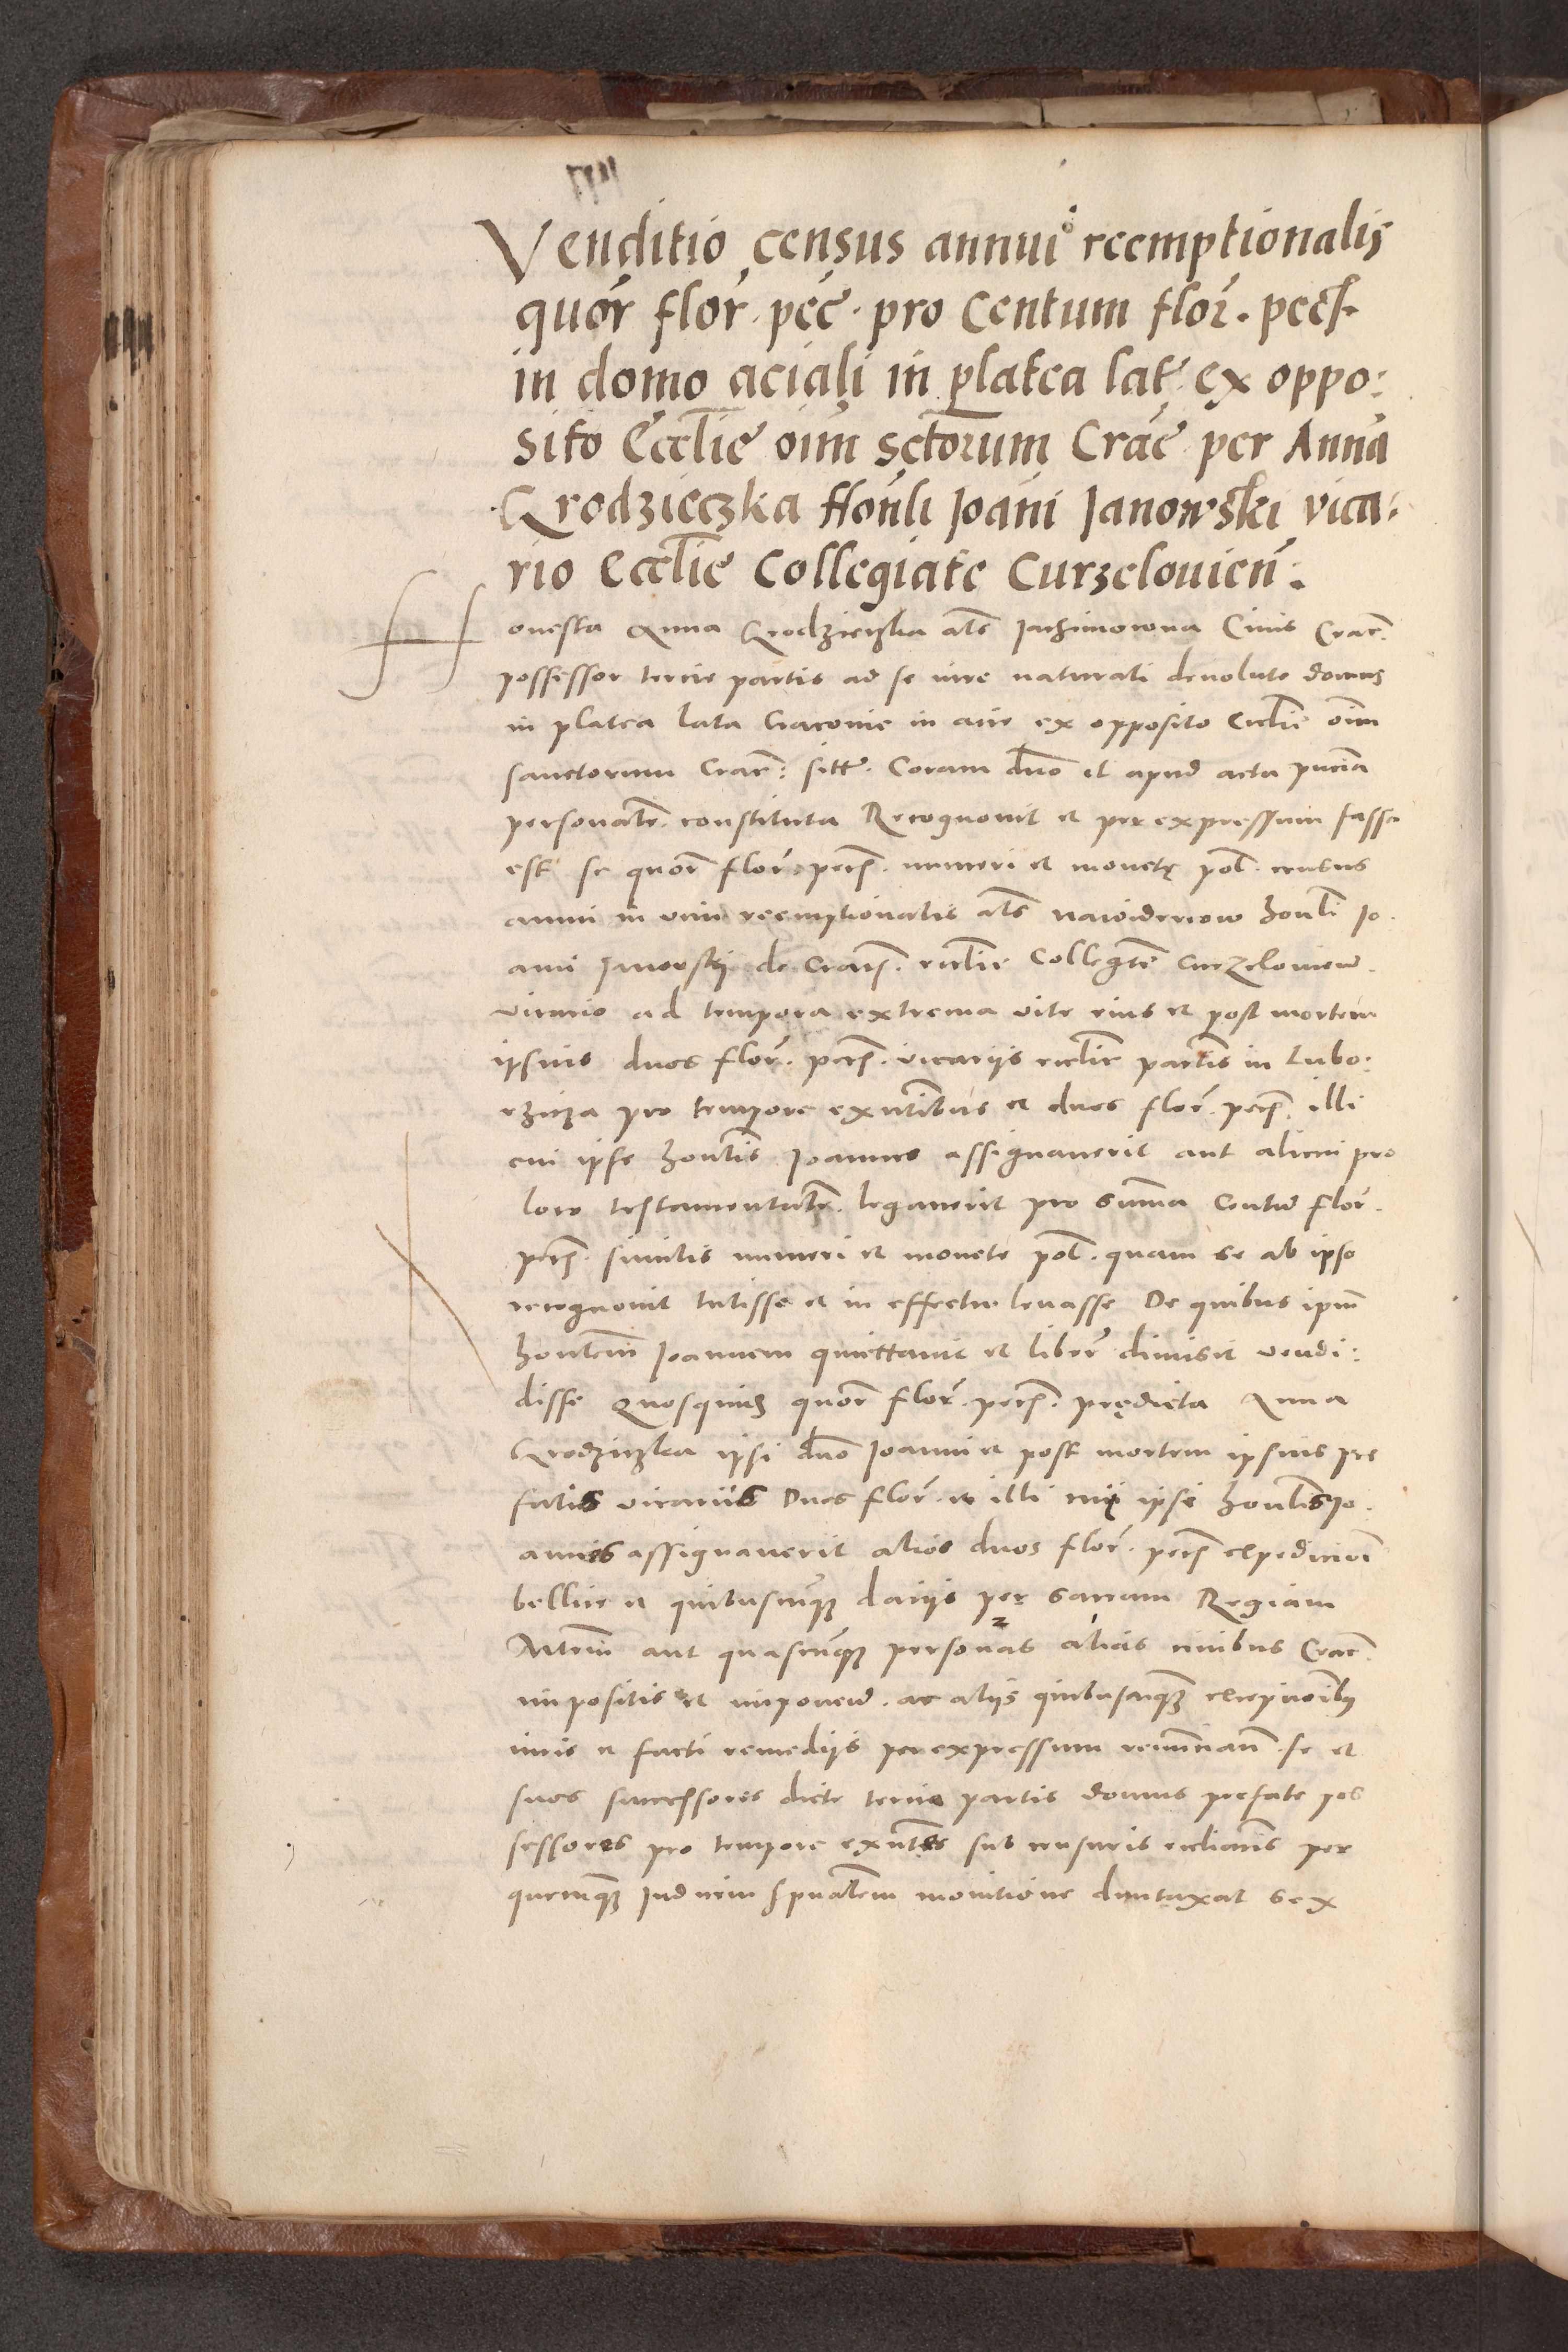 Venditio census annui reemptionalis
quor flor. pec. pro Centum flor. pecs.
in domo aciali in platea lat. ex oppo:
sito Eccl̄ie oīm sctorum Crac. per Annā
Grodzieczka Honli Joāni Janowski vica:
rio Eccl̄ie Collegiate Curzelovien̄.
Honesta Anna Grodzieczka al̄s Jachimowna Civis Crac.
possessor tercie partis ad se iure naturali devolute domus
in platea lata Cracovie in acie ex opposito Eccl̄ie oīm
sanctorum Crac: sitte. Coram dno et apud acta p̄ncia
personal̄r constituta Recognovit et per expressum fassa
est se quor flor. pecs. numeri et monetę pol. census
annui in vim reemptionalis al̄s honl̄i Jo.
anni de eccl̄ie Colleḡte Curzelovien̄.
vicario ad tempora extrema vite eius et post mortem
ipsius duos flor. pecs. vicarijs eccl̄ie in Lubo:
rzicza pro tempore exn̄tibus et duos flor. pecs. illi
cui ipse honl̄is Joannes assignaverit aut alicui pro
loco testamental̄r. legaverit pro sum̄a Centum flor.
pecs. similis numeri et monete pol. quam se ab ipso
recognovit tulisse et in effectu levasse De quibus ipm̄
honl̄em Joannem quittavit et liber dimisit vendi:
disse Quosquidem quor flor. pecs. prędicta Anna
Grodzieczka ipsi dno Joanni et post mortem ipsius pre
fatis vicariis Duos flor. et illi cui ipse honl̄is Jo.
annes assignaverit alios duos flor. pecs expedicioni
bellice et quibuscūq̨ dacijs per sacram Regiam
Mt̄em aut quascūq̨ personas alias civibus Crac.
impositis et imponen̄. ac aliis quibuscūq̨ excepcionibus
iuris et facti remedijs per expressum renuncian̄. se et
suos successores dicte tercie partis domus prefate pos
sessores pro tempore exn̄tes sub censuris eccl̄iacis per
quemcūq̨ Judicem sp̄ualem monitione duntaxat sex